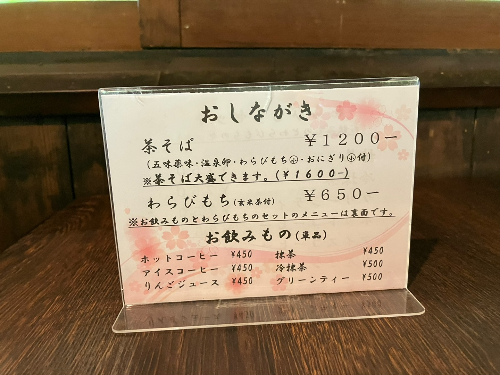 おしながき
茶そば ￥1200-
(五味薬味・温泉卵・わらびもち㊥・おにぎり㊥付)
※茶そば大盛できます。(￥1600-)
わらびもち(玄米茶付) ￥650-
※お飲みものとわらびもちのセットのメニューは裏面です。
お飲みもの(単品)
ホットコーヒー ¥450 抹茶 ¥450
アイスコーヒー ¥450 冷抹茶 ¥500
りんごジュース ¥450 グリーンティー ¥500